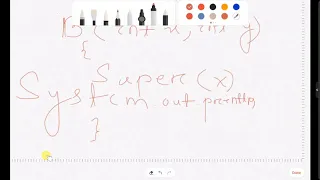 B (int x, int y)
{
Super (x)
System out println
}